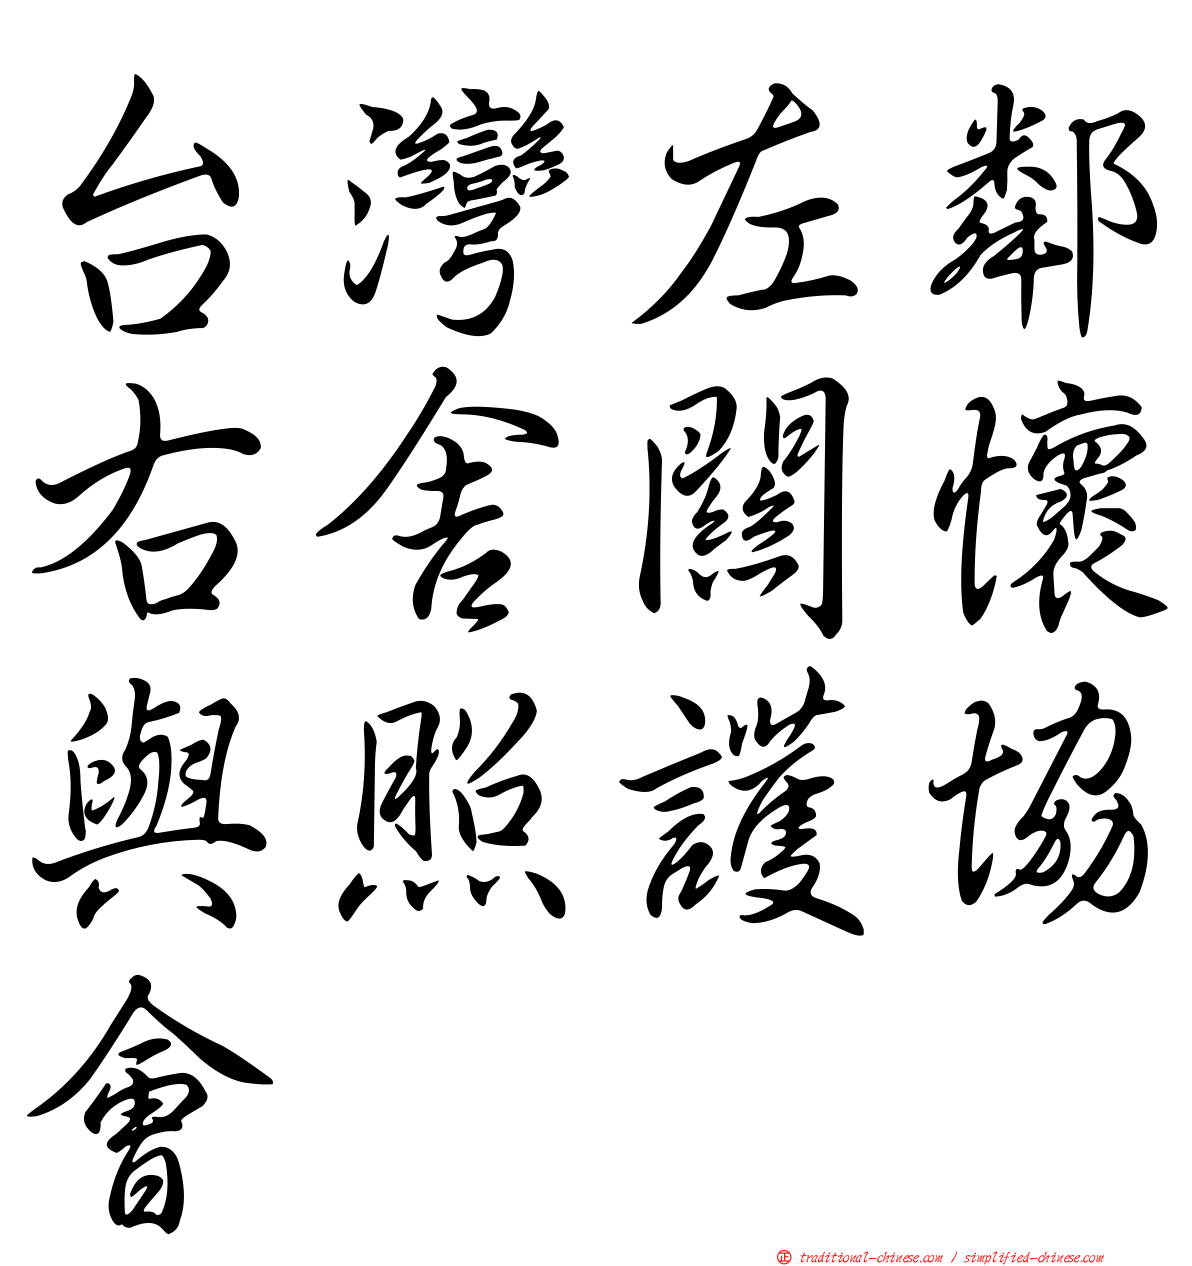 台灣左鄰
右舍關懷
與照護協
會
正 traditional-chinese.com / simplified-chinese.com